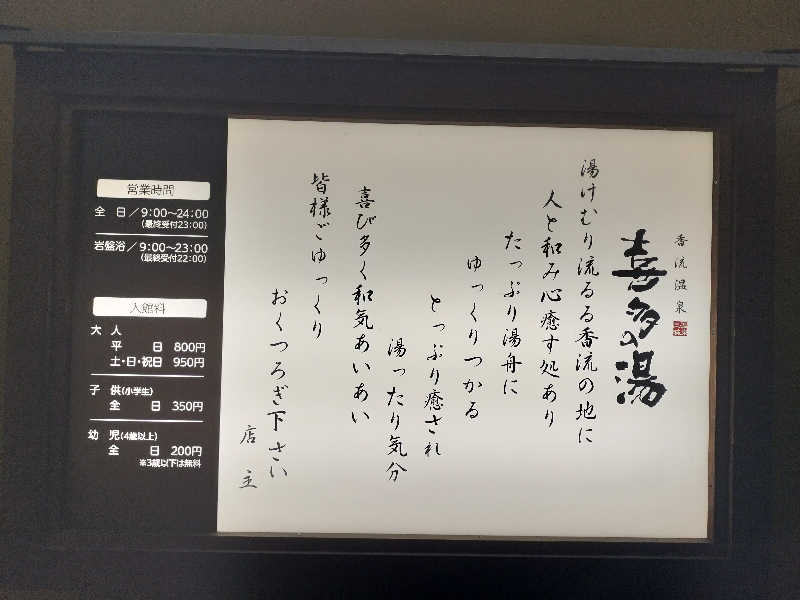 香流温泉
喜多の湯
湯けむり流るる香流の地に
人と和み心癒す処あり
たっぷり湯舟に
ゆっくりつかる
とっぷり癒され
湯ったり気分
喜び多く和気あいあい
皆様ごゆっくり
おくつろぎ下さい
店主
営業時間
全日/9:00〜24:00
(最終受付23:00)
岩盤浴/9:00〜23:00
(最終受付22:00)
入館料
大人
平日 800円
土・日・祝日 950円
子供(小学生)
全日 350円
幼児(4歳以上)
全日 200円
※3歳以下は無料